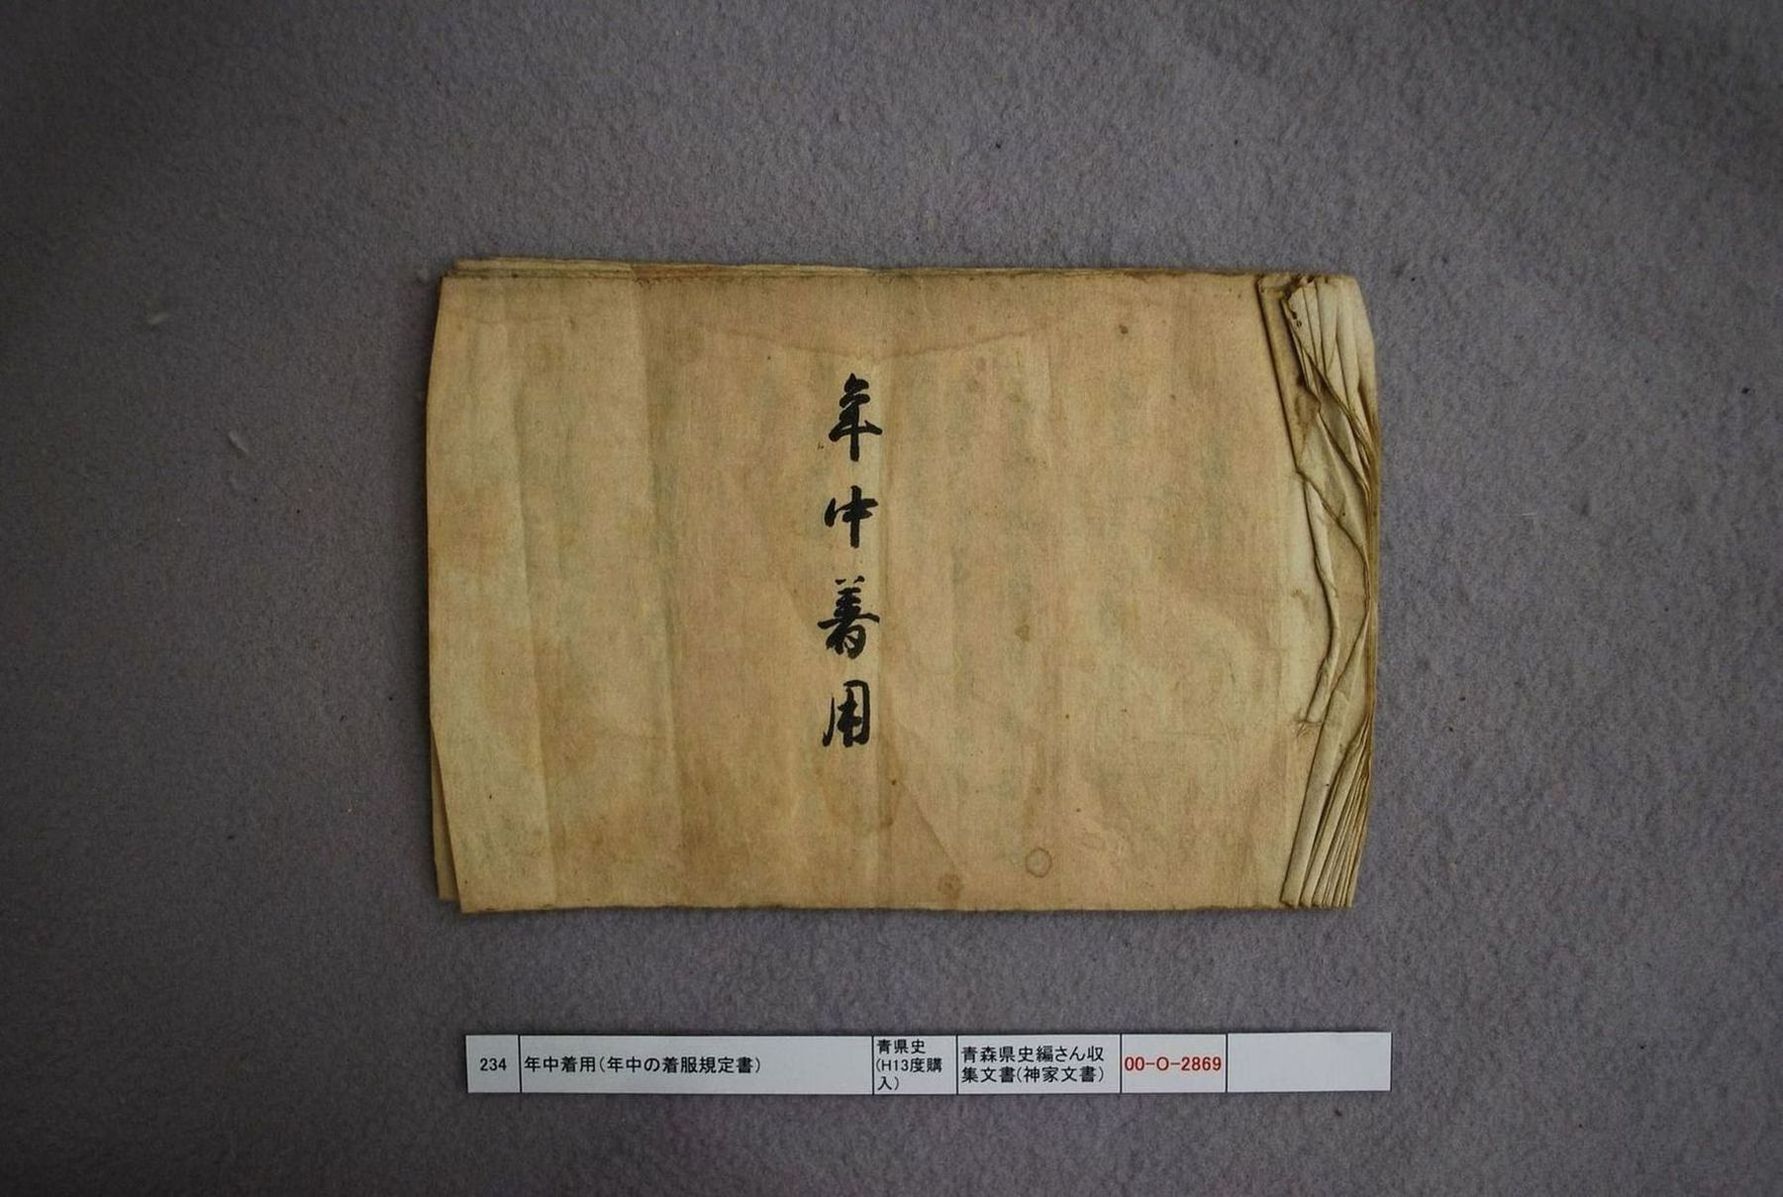 年中着用
234
年中着用(年中の着服規定書)
青県史
(H13度購
入)
青森県史編さん収
集文書(神家文書)
00-O-2869